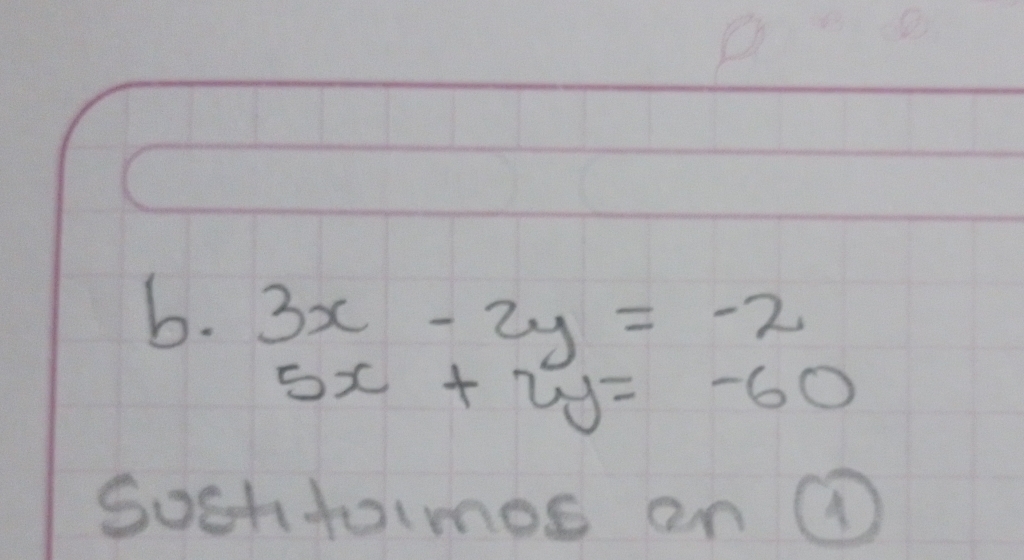 b. 3x - 2y = -2
5x + 2y = -60
Sustituimos en ①